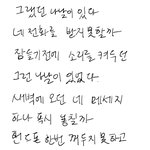 그랬던 나날이 있다
네 전화를 받지 못할까
잠들기전에 소리를 켜두던
그런 날이 있었다
새벽에 오던 네 메세지
하나 혹시 놓칠까
핸드폰 한번 꺼두지 못하고